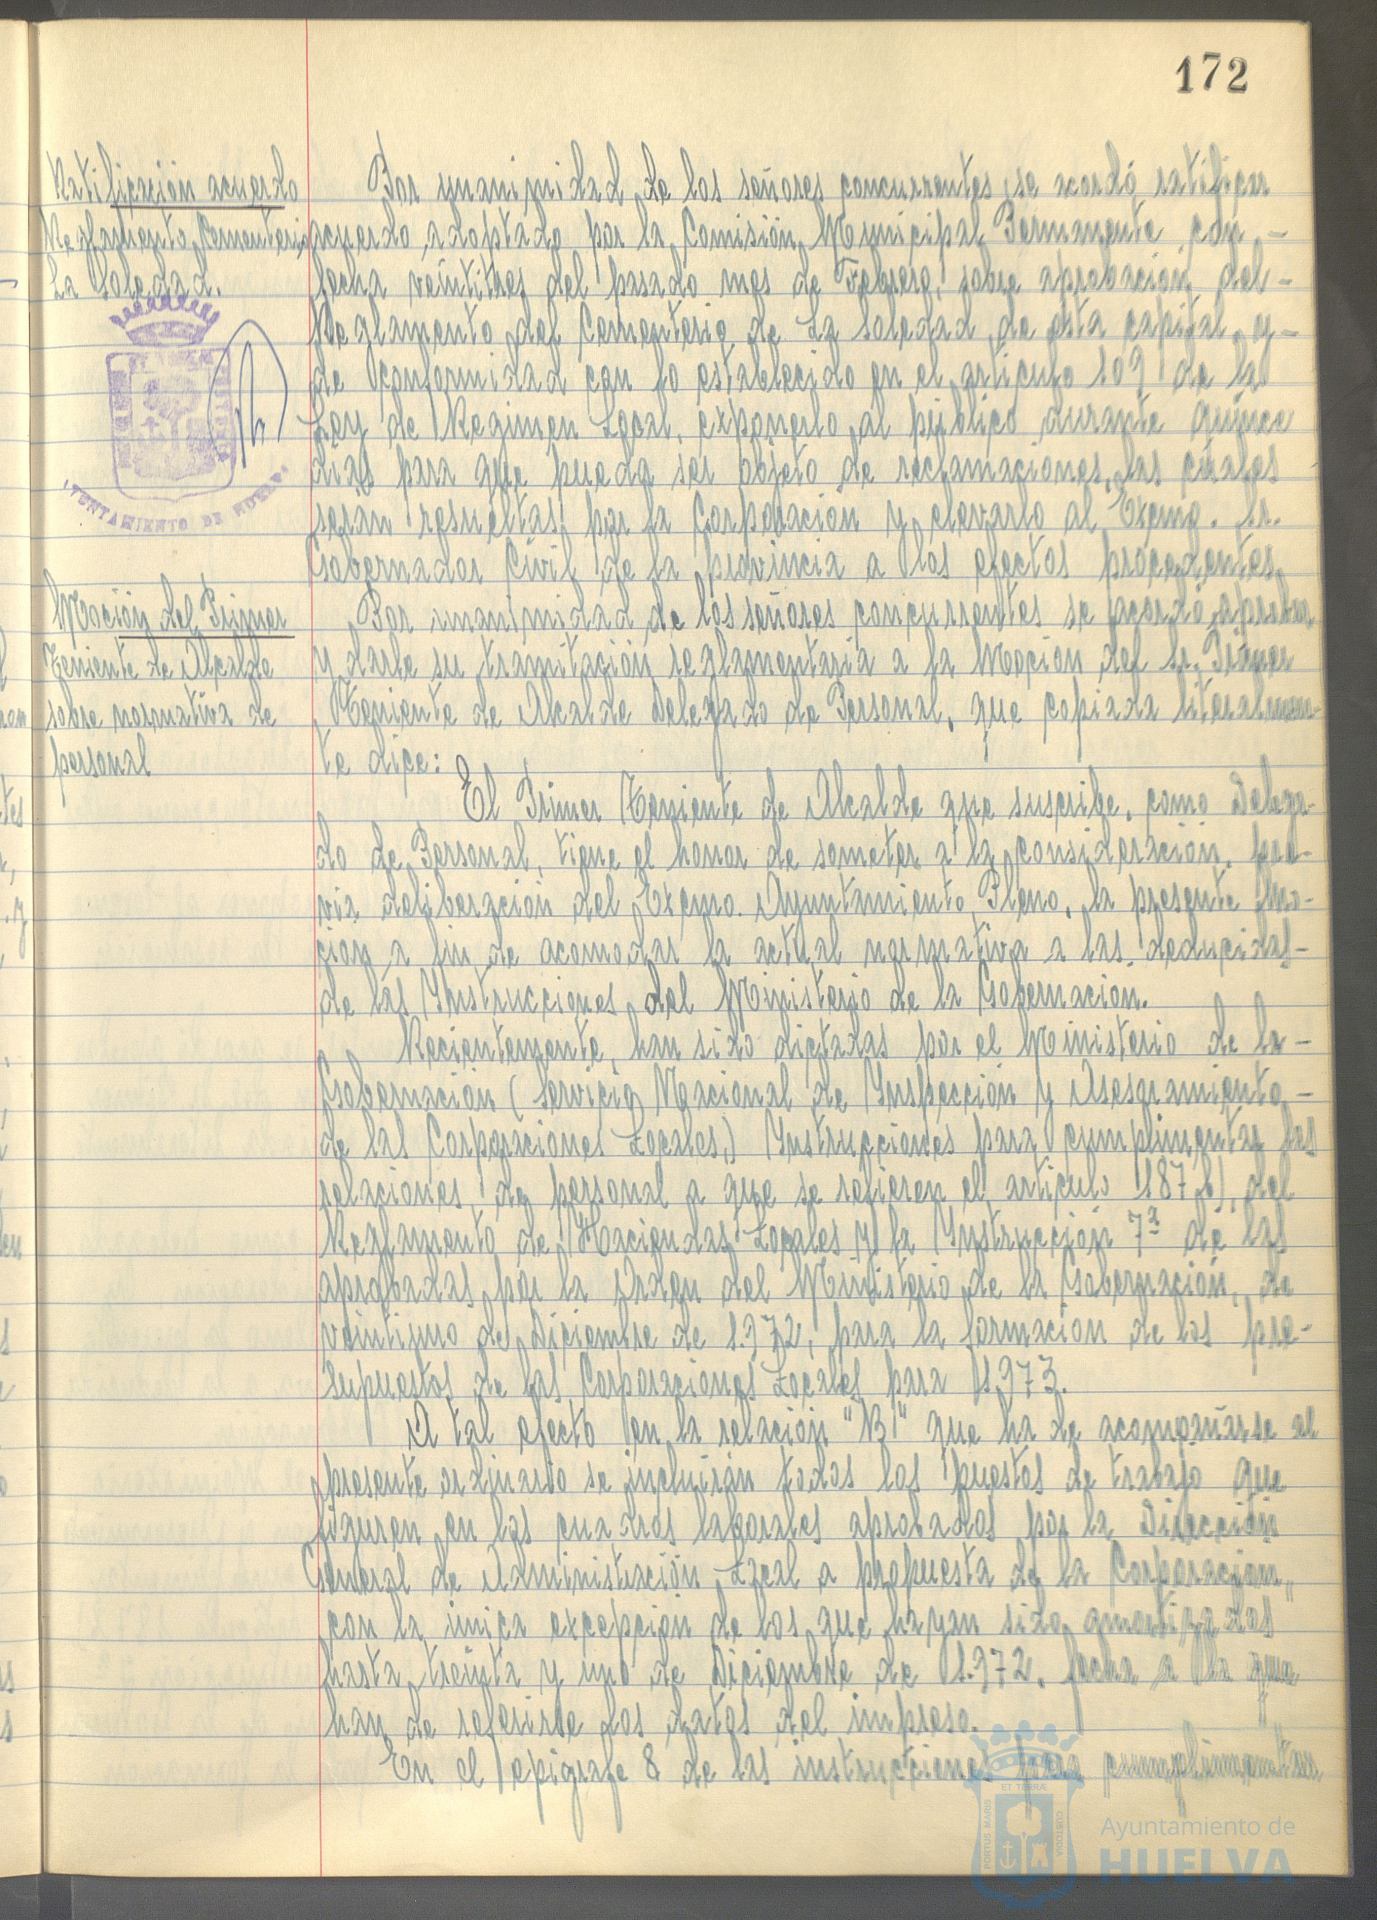 172
Ratificación acuerdo
Reglamento Cementerio
La Soledad.
AYUNTAMIENTO DE HUELVA
Por unanimidad de los señores concurrentes, se acordó ratificar
acuerdo adoptado por la Comisión Municipal Permanente con -
fecha veintitres del pasado mes de Febrero, sobre aprobación del -
Reglamento del Cementerio de La Soledad de esta capital y -
de conformidad con lo establecido en el articulo 109 de la
Ley de Regimen Local, exponerlo al público durante quince
dias para que pueda ser objeto de reclamaciones, las cuales
seran resueltas por la Corporación y elevarlo al Excmo. Sr.
Gobernador Civil de la provincia a los efectos procedentes.
Moción del Primer
Teniente de Alcalde
sobre normativa de
personal
Por unanimidad de los señores concurrentes se acordó aprobar
y darle su tramitación reglamentaria a la Moción del Sr. Primer
Teniente de Alcalde Delegado de Personal, que copiada literalmen-
te dice:
El Primer Teniente de Alcalde que suscribe, como Delega-
do de Personal, tiene el honor de someter a la consideración, pre-
via deliberación del Excmo. Ayuntamiento Pleno, la presente Mo-
ción a fin de acomodar la actual normativa a las deducidas -
de las Instrucciones del Ministerio de la Gobernación.
Recientemente, han sido dictadas por el Ministerio de la -
Gobernación (Servicio Nacional de Inspección y Asesoramiento -
de las Corporaciones Locales,) Instrucciones para cumplimentar las
relaciones de personal a que se refieren el articulo 187 b), del
Reglamento de Haciendas Locales y la Instrucción 7ª de las
aprobadas por la Orden del Ministerio de la Gobernación, de
veintiuno de Diciembre de 1.972, para la formación de los pre-
supuestos de las Corporaciones Locales para 1.973.
A tal efecto en la relación "B1" que ha de acompañarse al
presente ordinario se incluirán todos los puestos de trabajo que
figuren en los cuadros laborales aprobados por la Dirección
General de Administración Local a propuesta de la Corporacion,
con la única excepción de los que hayan sido amortizados
hasta treinta y uno de Diciembre de 1.972, fecha a la que
han de referirse los datos del impreso.
En el epigrafe 8 de las instrucciones para cumplimentar
ET TERRÆ
PORTUS MARIS
CUSTODIA
Ayuntamiento de
HUELVA